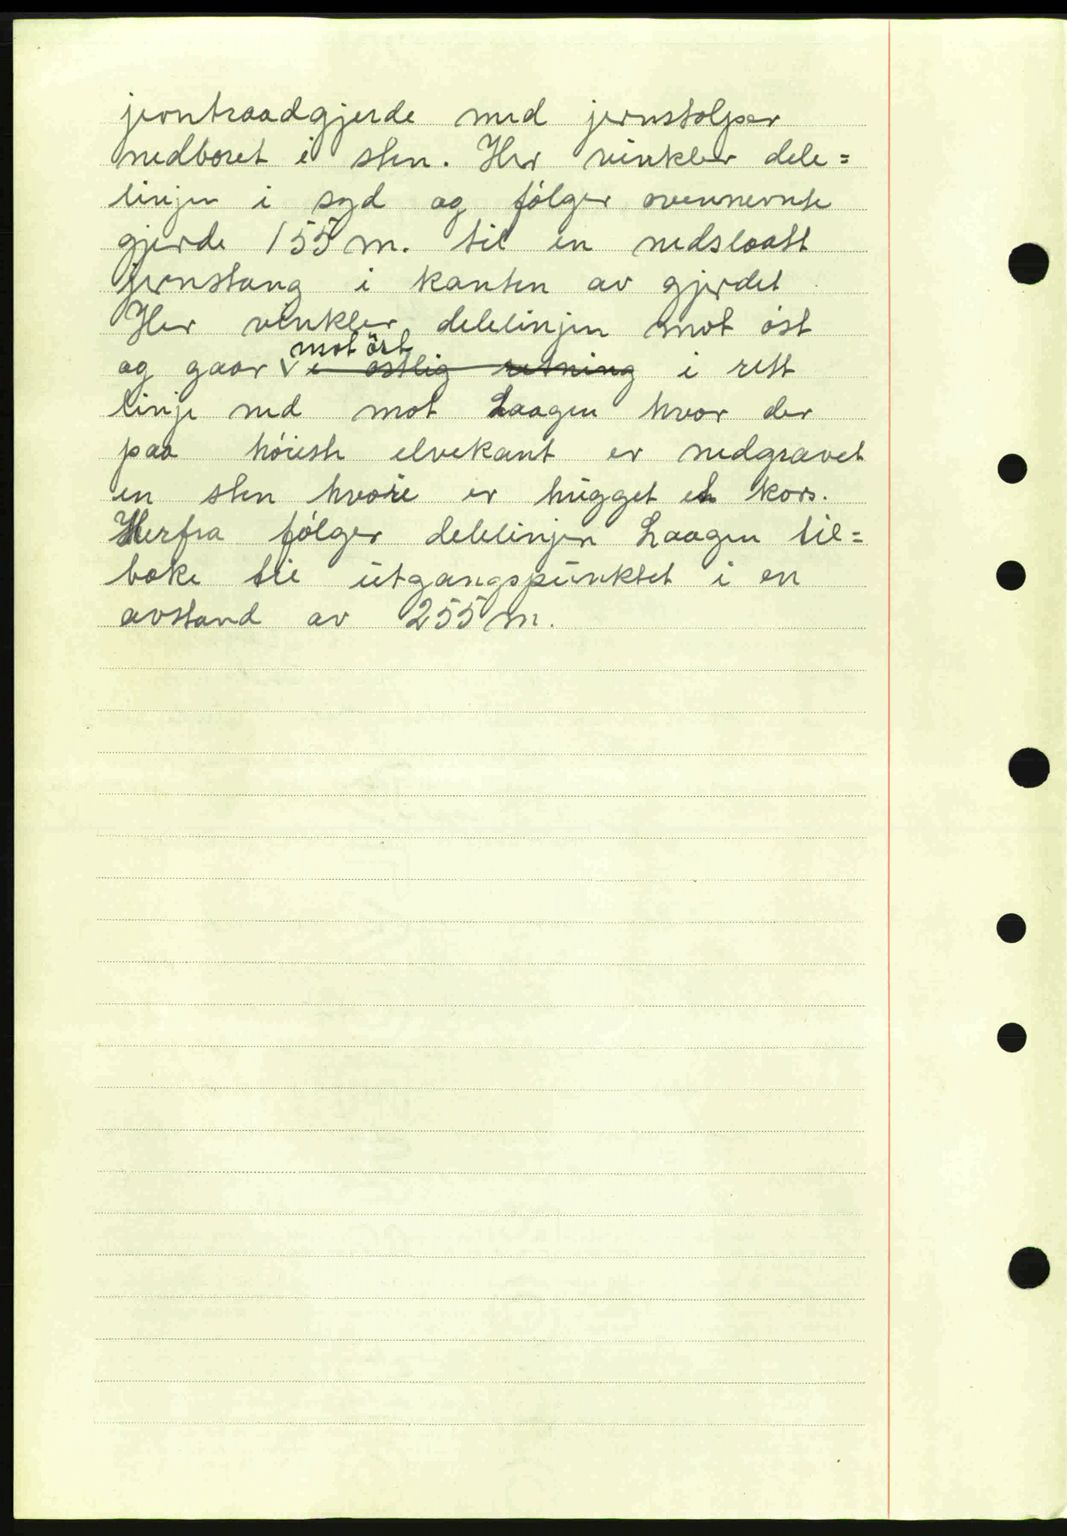 jerntraadgjerde med jernstolper
nedboret i sten. Her vinkler dele=
linjen i syd og følger ovennevnte
gjerde 155 m. til en nedslaatt
jernstang i kanten av gjerdet
Her vinkler delelinjen mot øst
mot øst
og gaar v i østlig retning i rett
linje ned mot Laagen hvor der
paa høieste elvekant er nedgravet
en sten hvori er hugget et kors.
Herfra følger delelinjen Laagen til=
bake til utgangspunktet i en
avstand av 255 m.